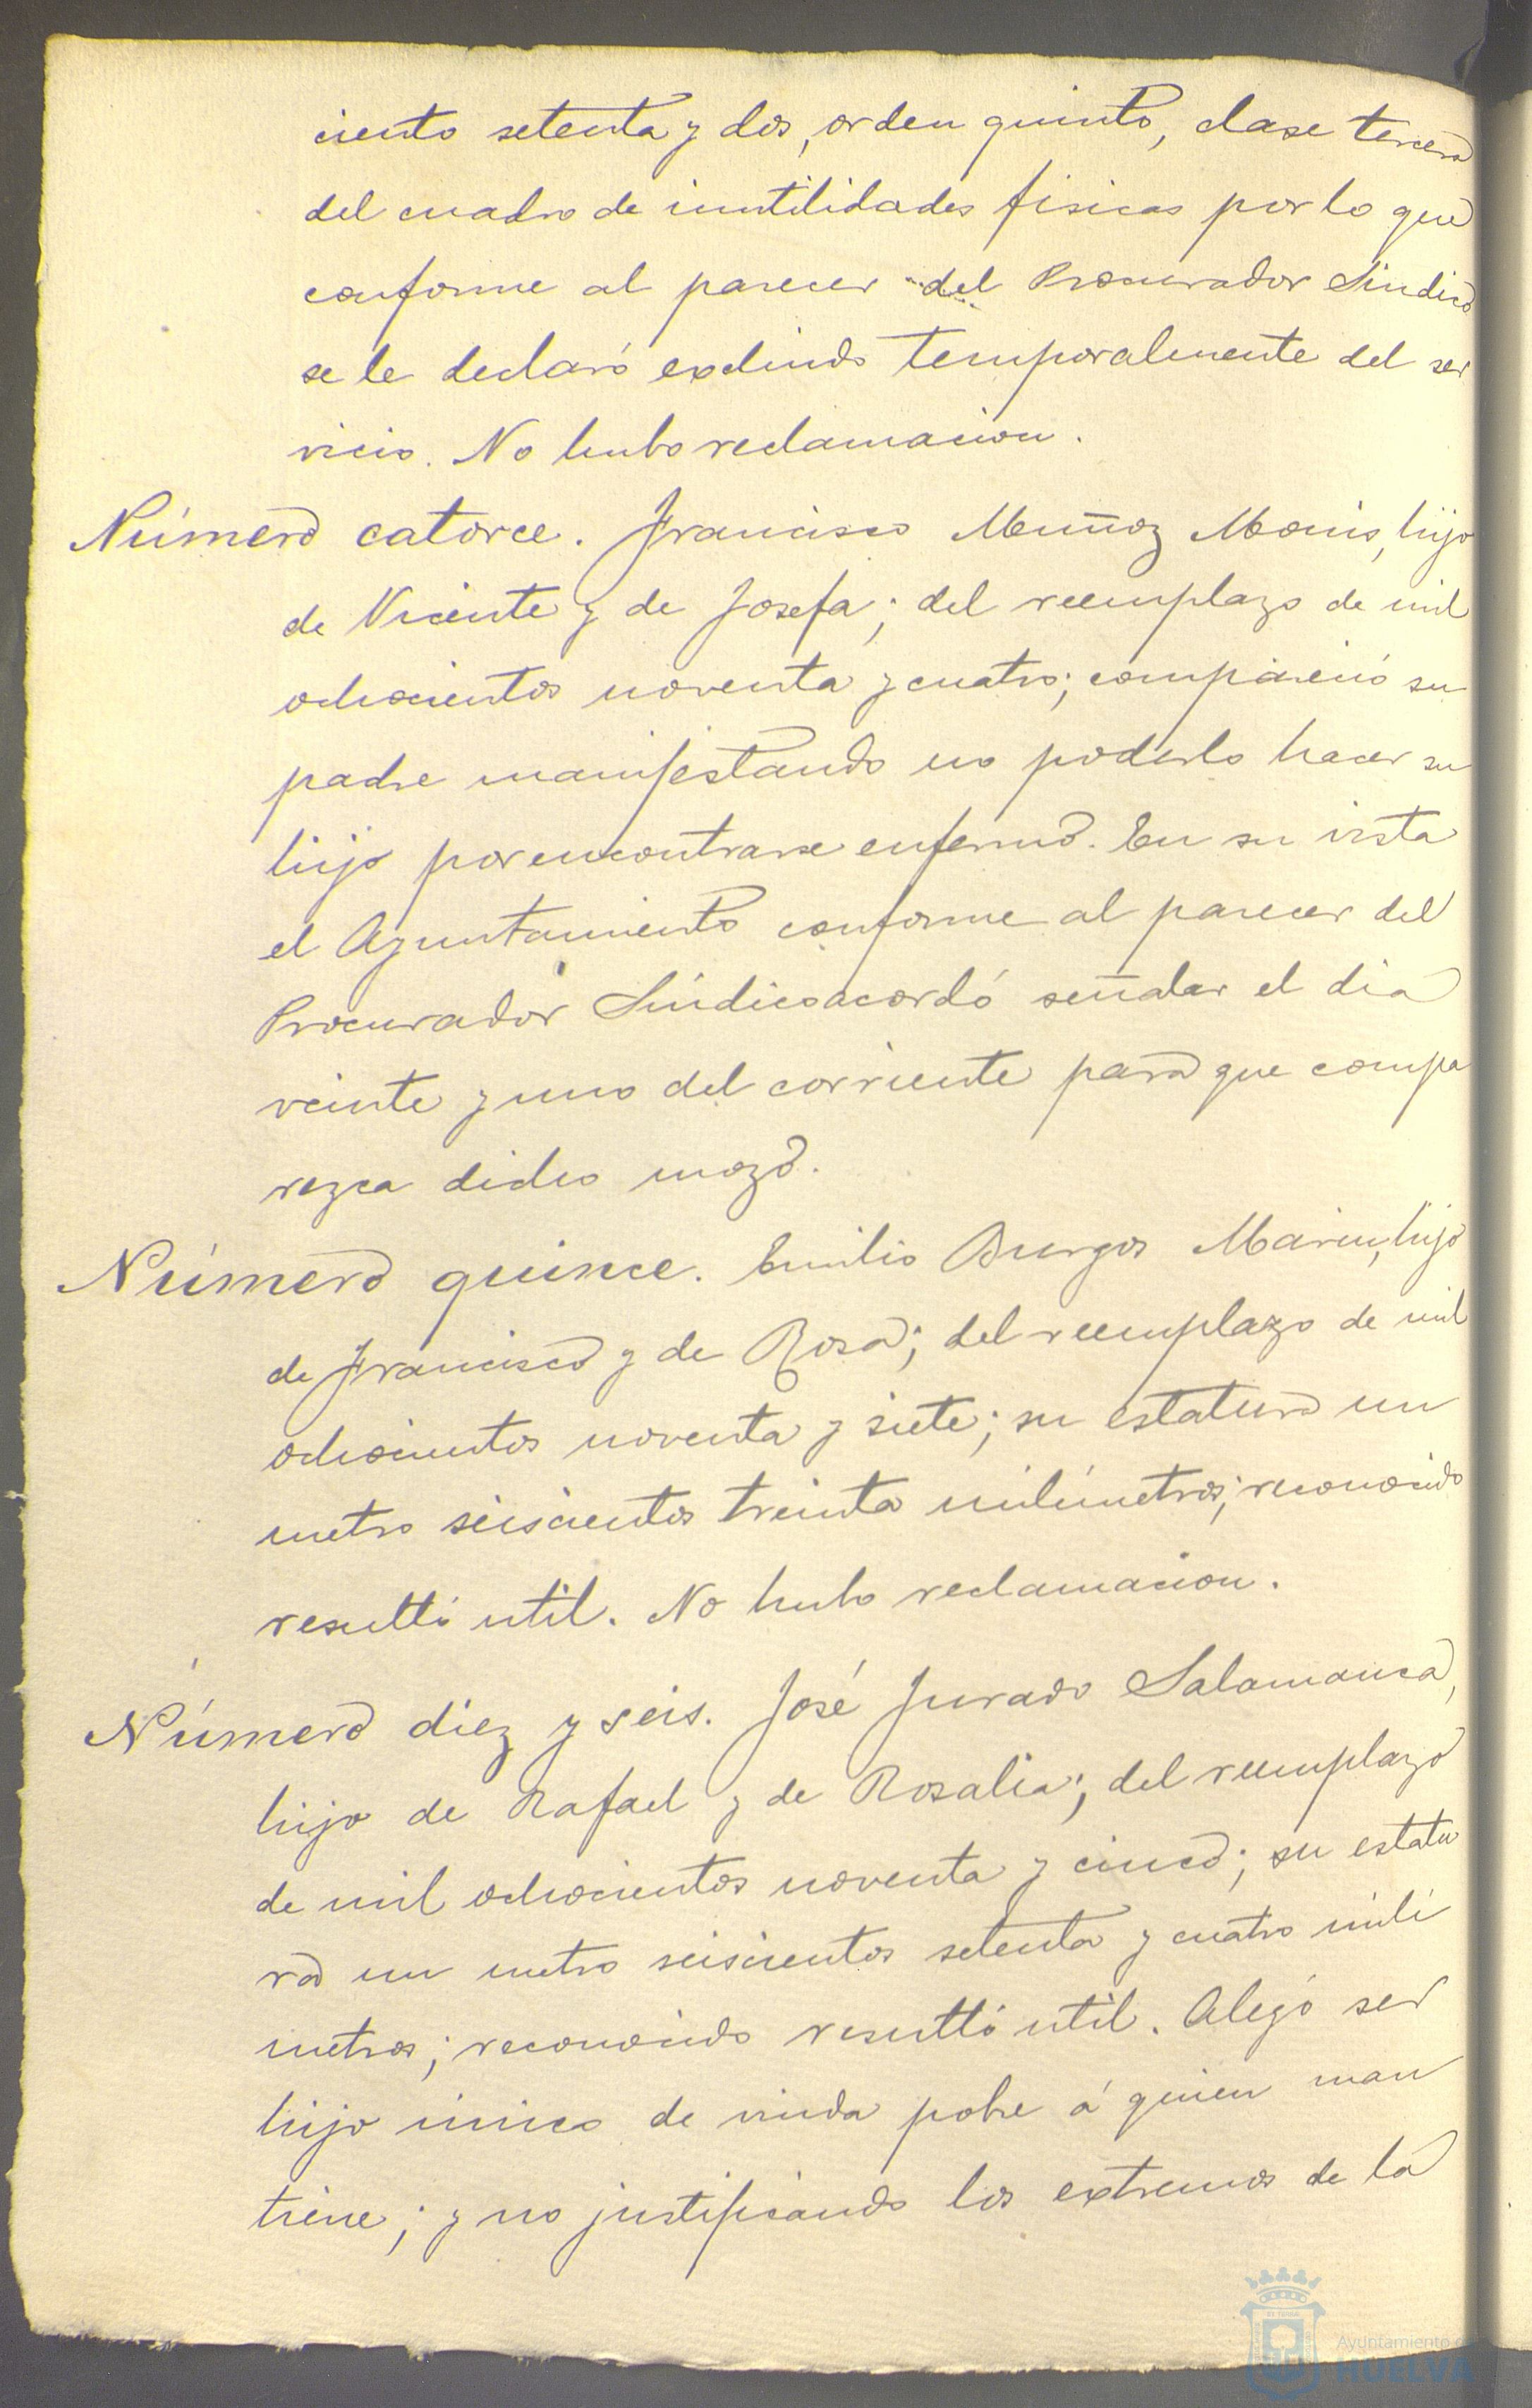 ciento setenta y dos, orden quinto, clase tercera
del cuadro de inutilidades fisicas por lo que
conforme al parecer del Procurador Sindico
se le declaró excluido temporalmente del ser
vicio. No hubo reclamacion.
Número catorce. Francisco Muñoz Monis, hijo
de Vicente y de Josefa; del reemplazo de mil
ochocientos noventa y cuatro; compareció su
padre manifestando no poderlo hacer su
hijo por encontrarse enfermo. En su vista
el Ayuntamiento conforme al parecer del
Procurador Síndico acordó señalar el dia
veinte y uno del corriente para que compa
rezca dicho mozo.
Número quince. Emilio Burgos Marin, hijo
de Francisco y de Rosa; del reemplazo de mil
ochocientos noventa y siete; su estatura un
metro seiscientos treinta milímetros; reconocido
resultó util. No hubo reclamacion.
Número diez y seis. José Jurado Salamanca,
hijo de Rafael y de Rosalia; del reemplazo
de mil ochocientos noventa y cinco; su estatu
ra un metro seiscientos setenta y cuatro milí
metros; reconocido resultó util. Alegó ser
hijo único de viuda pobre á quien man
tiene; y no justificando los extremos de la
Ayuntamiento de
HUELVA